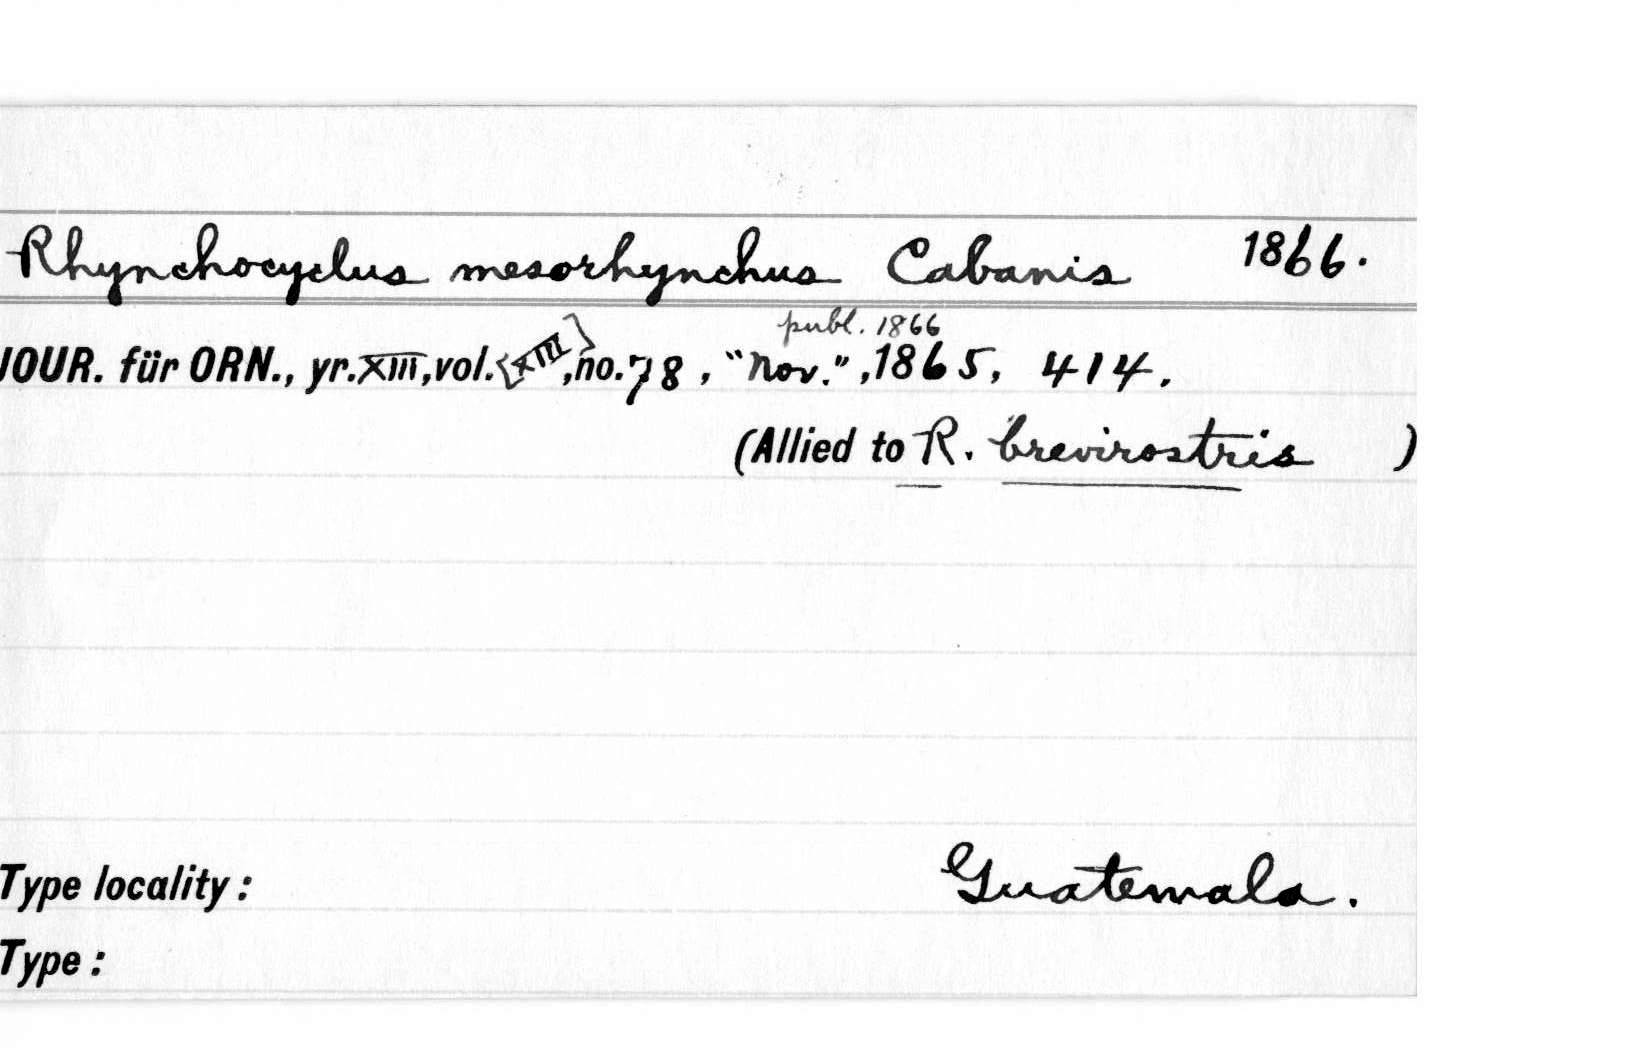 Rhynchocyclus mesorhynchus Cabanis 1866.
publ. 1866
JOUR. für ORN., yr. XIII, vol. [XIII], no. 78, "Nov.", 1865, 414.
(Allied to R. brevirostris )
Type locality: Guatemala.
Type: